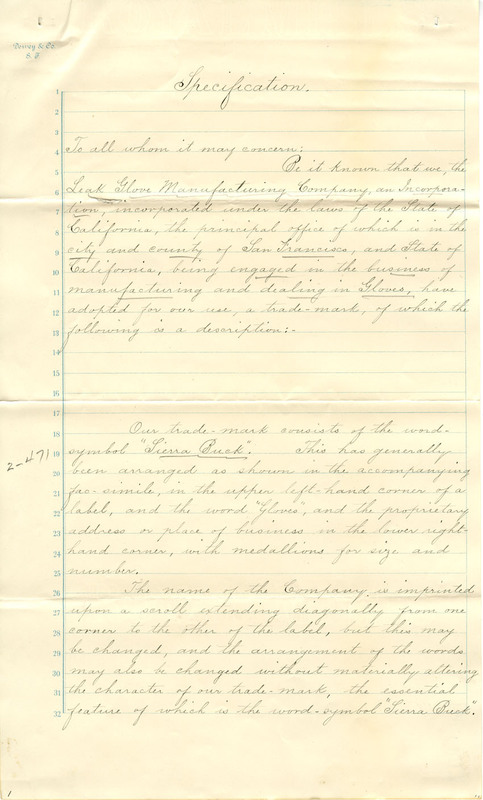 Dewey & Co.
S. F.
Specification.
1
2
3
4 To all whom it may concern:
5 Be it known that we, the
6 Leak Glove Manufacturing Company, an Incorpora-
7 tion, incorporated under the laws of the State of
8 California, the principal office of which is in the
9 city and county of San Francisco, and State of
10 California, being engaged in the business of
11 manufacturing and dealing in Gloves, have
12 adopted for our use, a trade-mark, of which the
13 following is a description:-
14
15
16
17
18 Our trade-mark consists of the word-
19 symbol "Sierra Buck". This has generally
2-471
20 been arranged as shown in the accompanying
21 fac-simile, in the upper left-hand corner of a
22 label, and the word "Gloves", and the proprietary
23 address or place of business in the lower right-
24 hand corner, with medallions for size and
25 number.
26 The name of the Company is imprinted
27 upon a scroll extending diagonally from one
28 corner to the other of the label, but this may
29 be changed, and the arrangement of the words
30 may also be changed without materially altering
31 the character of our trade-mark, the essential
32 feature of which is the word-symbol "Sierra Buck".